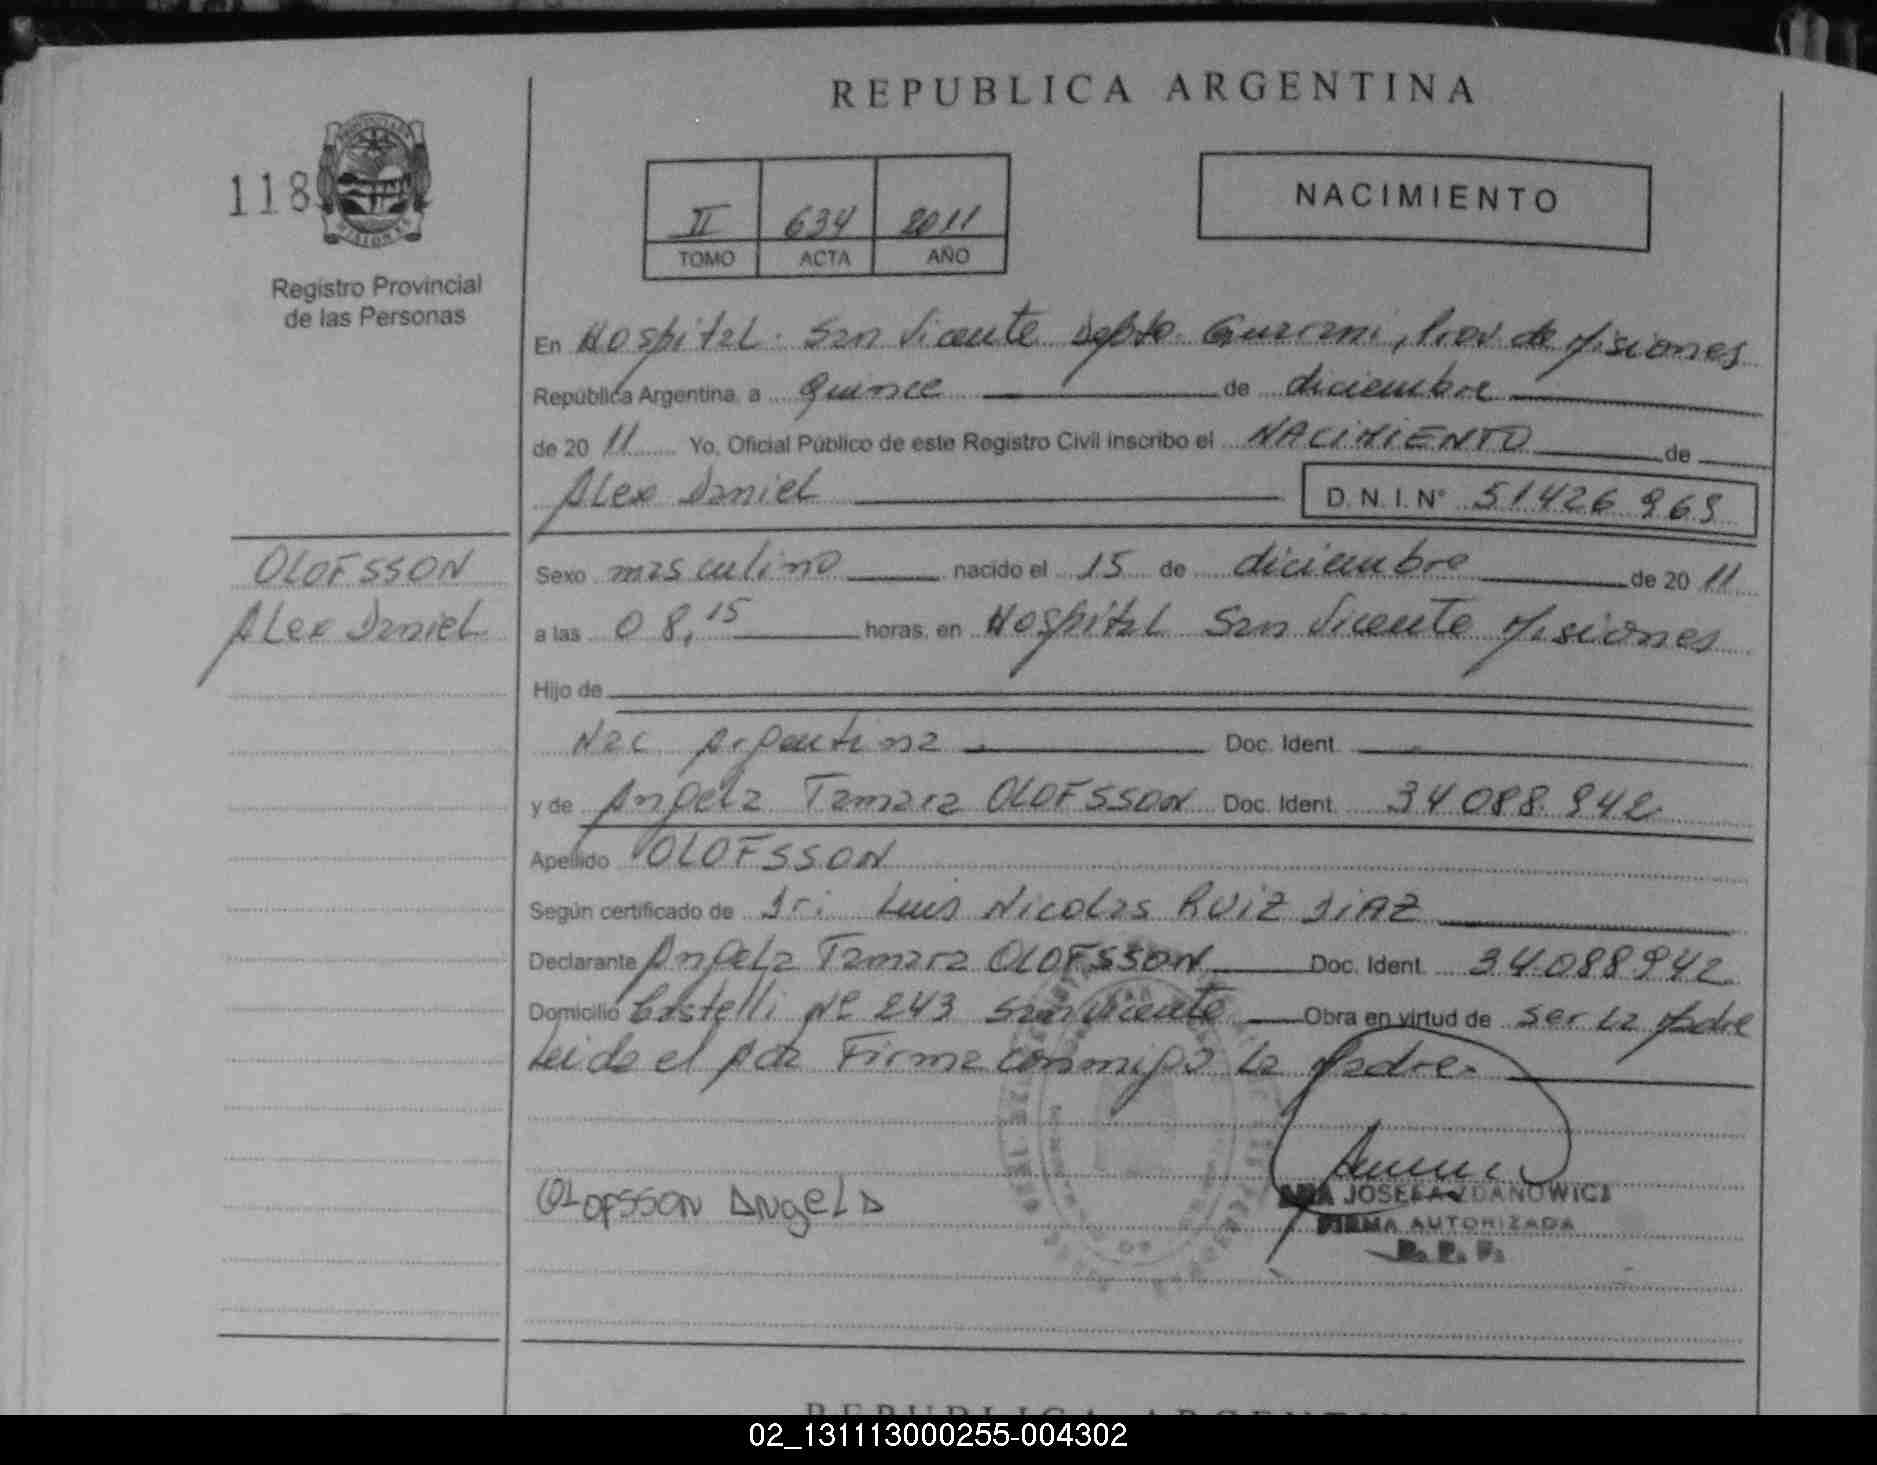 REPUBLICA ARGENTINA
118
NACIMIENTO
II 634 2011
TOMO ACTA AÑO
Registro Provincial
de las Personas
En Hospital San Vicente Depto Guarani, Prov de Misiones
República Argentina, a quince de diciembre
de 2011 Yo, Oficial Público de este Registro Civil inscribo el NACIMIENTO de
Alex Daniel D.N.I.Nº 51426969
OLOFSSON
Alex Daniel
Sexo masculino nacido el 15 de diciembre de 2011
a las 08,15 horas, en Hospital San Vicente Misiones
Hijo de
Nac Argentina Doc. Ident.
y de Angela Tamara OLOFSSON Doc. Ident. 34088942
Apellido OLOFSSON
Según certificado de Dr: Luis Nicolas RUIZ DIAZ
Declarante Angela Tamara OLOFSSON Doc. Ident. 34088942
Domicilio Castelli Nº 243 San Vicente Obra en virtud de ser la Madre
Leida el Acta Firma conmigo la Madre.
OLOFSSON ANgeLA
JOSEFA ZDANOWICZ
FIRMA AUTORIZADA
R. P. P.
REPUBLICA ARGENTINA
02_131113000255-004302